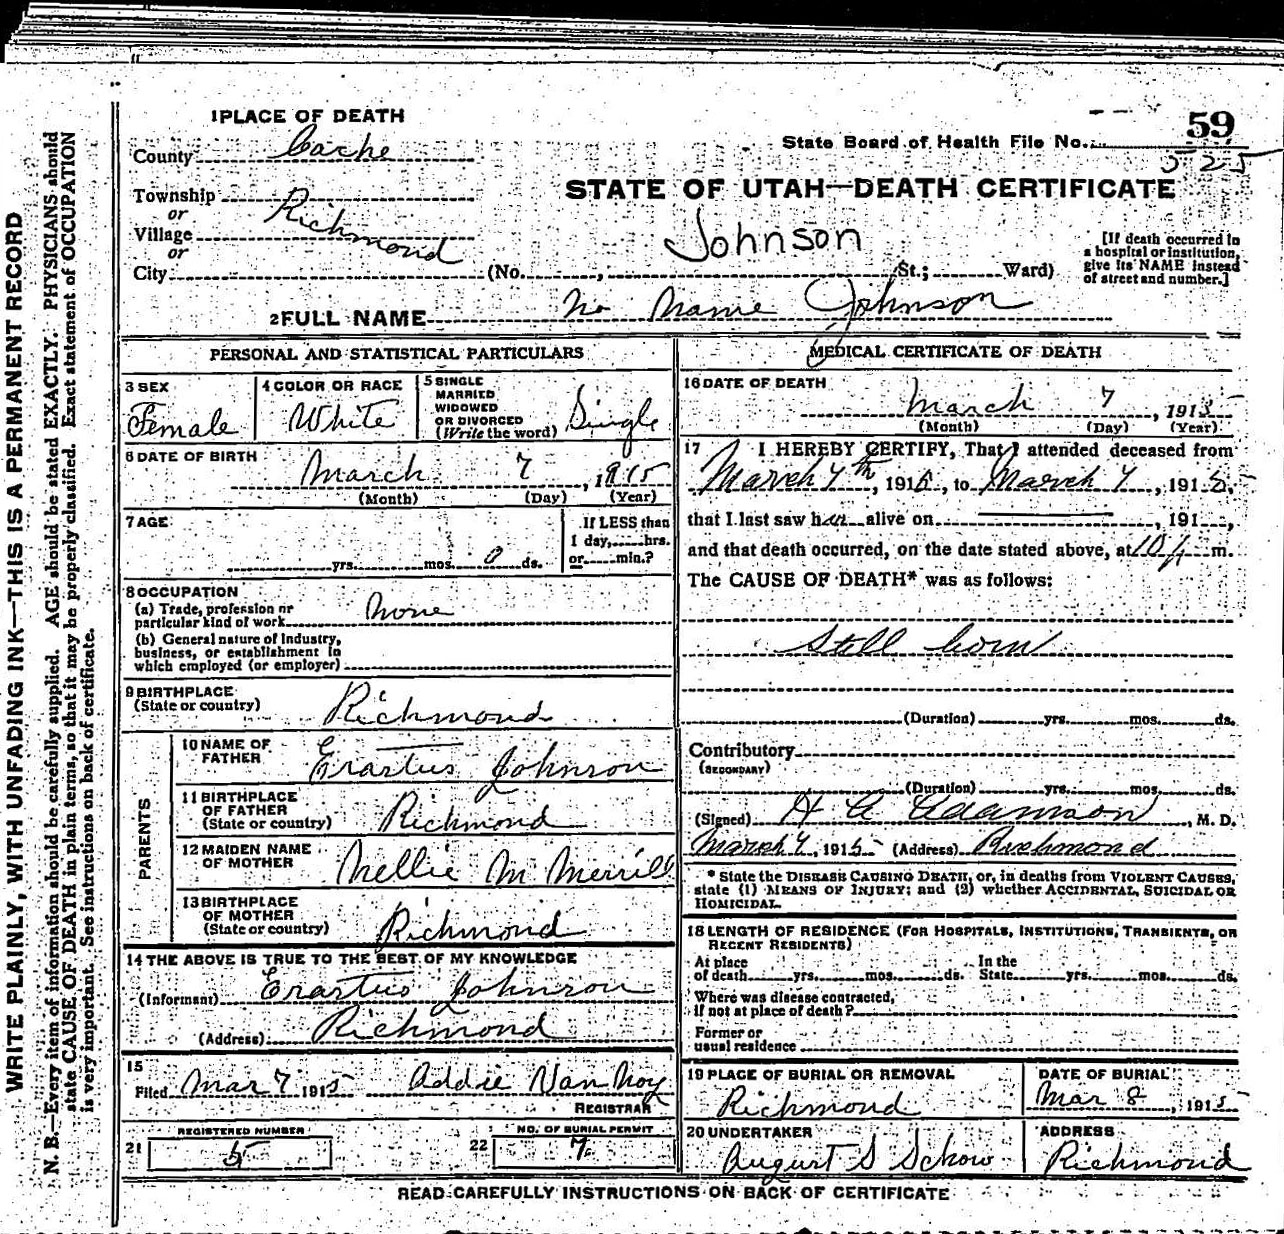 WRITE PLAINLY, WITH UNFADING INK—THIS IS A PERMANENT RECORD
N. B.—Every item of information should be carefully supplied. AGE should be stated EXACTLY. PHYSICIANS should
state CAUSE OF DEATH in plain terms, so that it may be properly classified. Exact statement of OCCUPATION
is very important. See instructions on back of certificate.
1 PLACE OF DEATH
County Cache
Township
or
Village Richmond
or
City (No. , St.; Ward)
State Board of Health File No. 59
525
STATE OF UTAH—DEATH CERTIFICATE
Johnson
[If death occurred in
a hospital or institution,
give its NAME instead
of street and number.]
2 FULL NAME No Name Johnson
PERSONAL AND STATISTICAL PARTICULARS
3 SEX
Female
4 COLOR OR RACE
White
5 SINGLE
MARRIED
WIDOWED
OR DIVORCED
(Write the word) Single
6 DATE OF BIRTH
March 7, 1915
(Month) (Day) (Year)
7 AGE
yrs. mos. 0 ds.
If LESS than
1 day, hrs.
or min.?
8 OCCUPATION
(a) Trade, profession or
particular kind of work None
(b) General nature of industry,
business, or establishment in
which employed (or employer)
9 BIRTHPLACE
(State or country) Richmond
PARENTS
10 NAME OF
FATHER Erastus Johnson
11 BIRTHPLACE
OF FATHER
(State or country) Richmond
12 MAIDEN NAME
OF MOTHER Nellie M Merrill
13 BIRTHPLACE
OF MOTHER
(State or country) Richmond
14 THE ABOVE IS TRUE TO THE BEST OF MY KNOWLEDGE
(Informant) Erastus Johnson
(Address) Richmond
15
Filed Mar 7 1915 Addie Van Noy
REGISTRAR
REGISTERED NUMBER
21 5
NO. OF BURIAL PERMIT
22 7
MEDICAL CERTIFICATE OF DEATH
16 DATE OF DEATH
March 7, 1915
(Month) (Day) (Year)
17 I HEREBY CERTIFY, That I attended deceased from
March 7th, 1915, to March 7, 1915,
that I last saw her alive on , 191 ,
and that death occurred, on the date stated above, at 10 A m.
The CAUSE OF DEATH* was as follows:
Still born
(Duration) yrs. mos. ds.
Contributory
(SECONDARY)
(Duration) yrs. mos. ds.
(Signed) H A Adamson, M. D.
March 7, 1915 (Address) Richmond
* State the DISEASE CAUSING DEATH, or, in deaths from VIOLENT CAUSES,
state (1) MEANS OF INJURY; and (2) whether ACCIDENTAL, SUICIDAL OR
HOMICIDAL.
18 LENGTH OF RESIDENCE (FOR HOSPITALS, INSTITUTIONS, TRANSIENTS, OR
RECENT RESIDENTS)
At place In the
of death yrs. mos. ds. State yrs. mos. ds.
Where was disease contracted,
if not at place of death?
Former or
usual residence
19 PLACE OF BURIAL OR REMOVAL
Richmond
DATE OF BURIAL
Mar 8, 1915
20 UNDERTAKER
August S Schow
ADDRESS
Richmond
READ CAREFULLY INSTRUCTIONS ON BACK OF CERTIFICATE